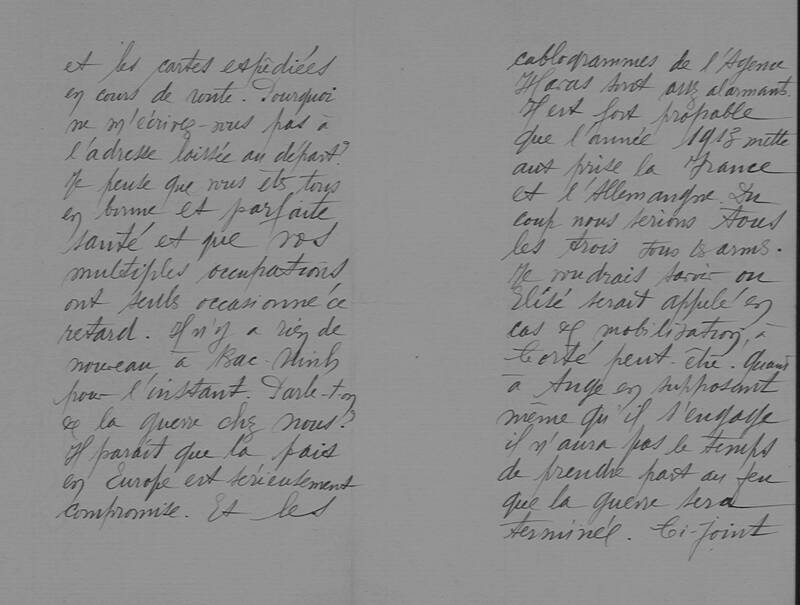 et les cartes expédiées
en cours de route. Pourquoi
ne m'écrivez-vous pas à
l'adresse laissée au départ?
Je pense que vous êts tous
en bonne et parfaite
santé et que vos
multiples occupations
ont seuls occasionné ce
retard. Il n'y a rien de
nouveau à Bac-Ninh
pour l'instant. Parle-t-on
de la guerre chez nous?
Il parait que la paix
en Europe est sérieusement
compromise. Et les
cablogrammes de l'Agence
Havas sont assez alarmants.
Il est fort probable
que l'année 1913 mette
aux prise la France
et l'Allemangne. Du
coup nous serions tous
les trois sous les armes.
Je voudrais savoir ou
Elisé serait appelé en
cas de mobilisation, à
peut-être. Quant
à Ange en supposant
même qu'il s'engage
il n'aura pas le temps
de prendre part au feu
que la guerre sera
terminée. Ci-joint